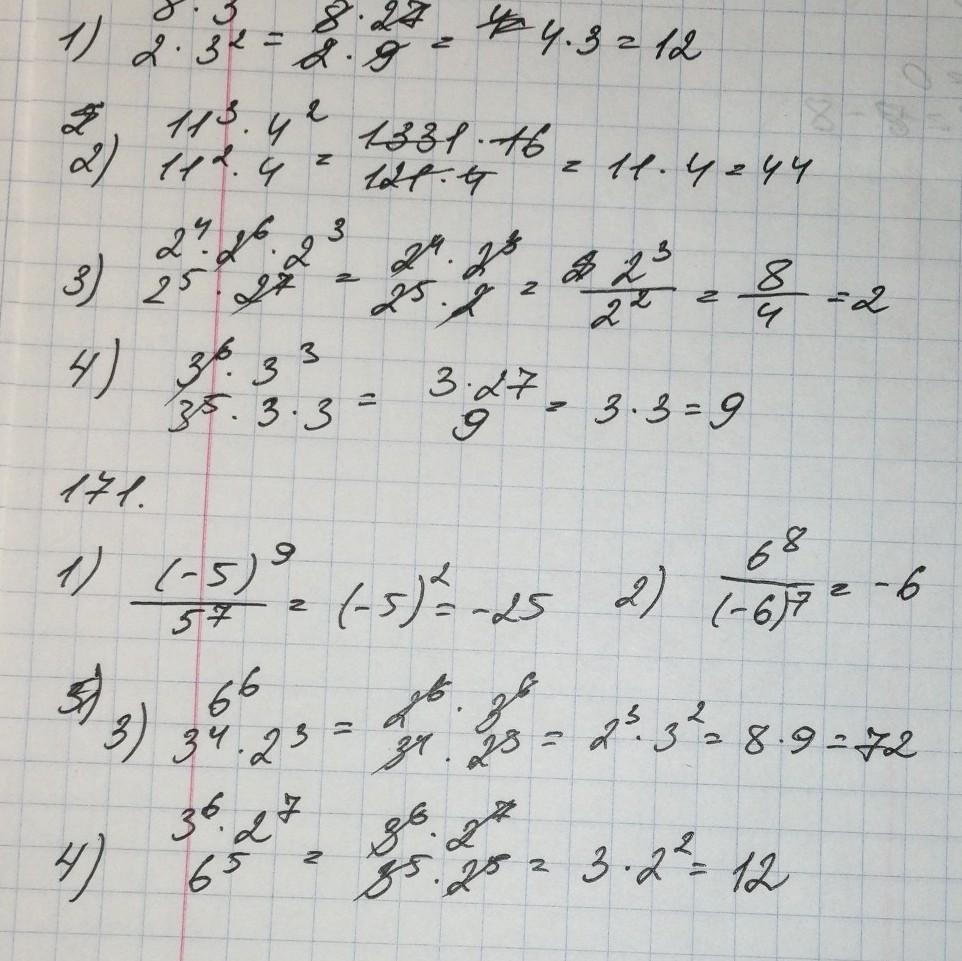 1) 8 · 3 / 2 · 3² = 8 · 27 / 2 · 9 = 4 · 3 = 12
2) 11³ · 4² / 11² · 4 = 1331 · 16 / 121 · 4 = 11 · 4 = 44
3) 2⁴ · 2⁶ · 2³ / 2⁵ · 27 = 2⁴ · 2³ / 2⁵ · 2 = 2³ / 2² = 8 / 4 = 2
4) 3⁶ · 3³ / 3⁵ · 3 · 3 = 3 · 27 / 9 = 3 · 3 = 9
171.
1) (-5)⁹ / 5⁷ = (-5)² = -25 2) 6⁸ / (-6)⁷ = -6
3) 6⁶ / 3⁴ · 2³ = 2⁶ · 3⁶ / 3⁴ · 2³ = 2³ · 3² = 8 · 9 = 72
4) 3⁶ · 2⁷ / 6⁵ = 3⁶ · 2⁷ / 3⁵ · 2⁵ = 3 · 2² = 12